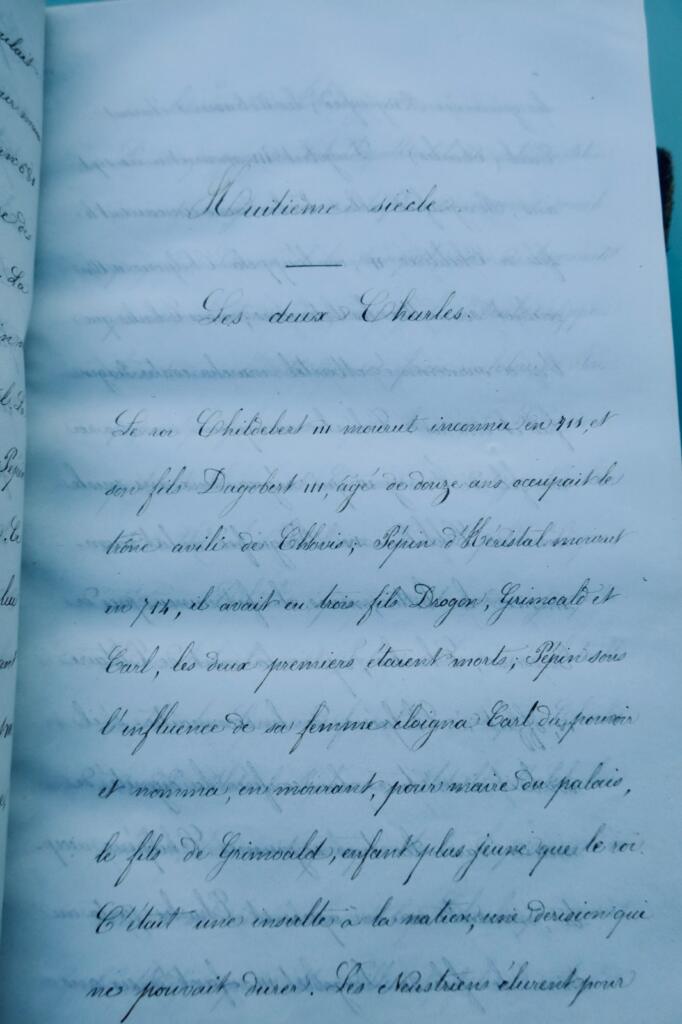 Huitième siècle.
Les deux Charles.
Le roi Childebert III mourut inconnu en 711, et
son fils Dagobert III, âgé de douze ans occupait le
trône avili de Chlovis; Pépin d'Héristal mourut
en 714, il avait eu trois fils Drogon, Grimoald et
Carl, les deux premiers étaient morts; Pépin sous
l'influence de sa femme éloigna Carl du pouvoir
et nomma, en mourant, pour maire du palais,
le fils de Grimoald, enfant plus jeune que le roi.
C'était une insulte à la nation, une dérision qui
ne pouvait durer. Les Neustriens élurent pour